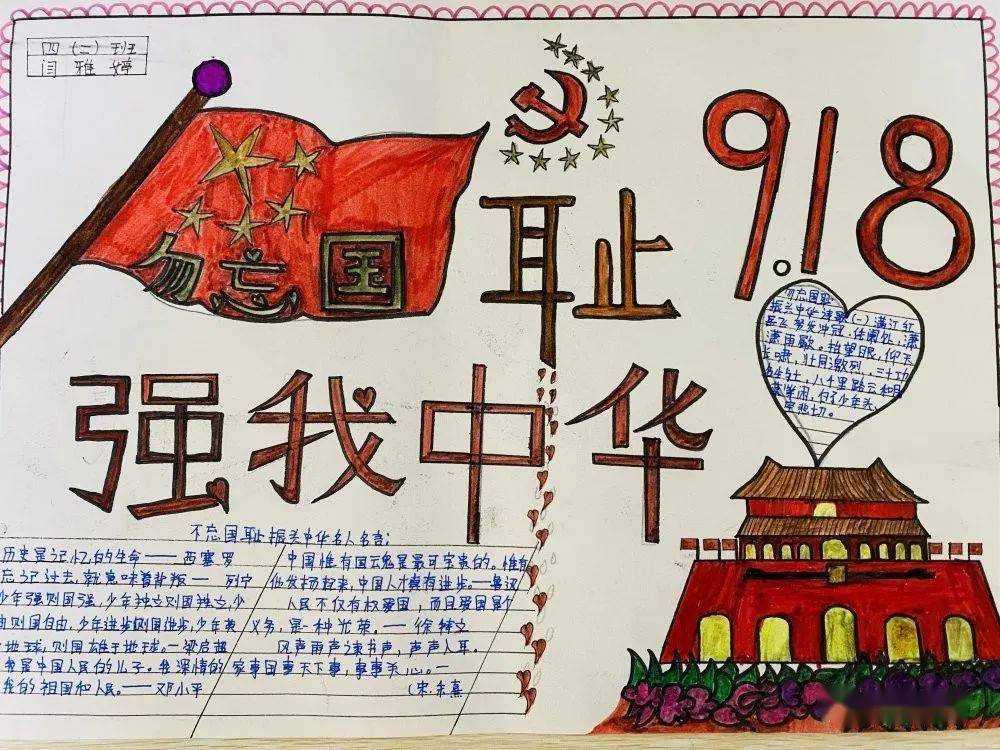 四（二）班
闫雅婷
9.18
勿忘国耻
强我中华
勿忘国耻
振兴中华诗歌(一)满江红
岳飞 怒发冲冠.凭阑处,潇
潇雨歇。抬望眼,仰天
长啸,壮
怀激烈,三十功
名尘与土,八千里路云和月
莫等闲,白了少年头,
空悲切。
不忘国耻振兴中华名人名言:
历史是记忆的生命——西塞罗
忘记过去,就意味着背叛——列宁
少年强则国强,少年独立则国独立,少
由则国自由,少年进步则国进步,少年英
地球,则国雄于地球。—梁启超
我是中国人民的儿子。我深情的
我的祖国和人民。——邓小平
中国惟有国魂是最可宝贵的。惟有
他发扬起来,中国人才有进步。—鲁迅
人民不仅有权爱国,而且爱国是个
义务,是一种光荣。—徐特立
风声雨声读书声,声声入耳。
家事国事天下事,事事关心。—
(宋.朱熹